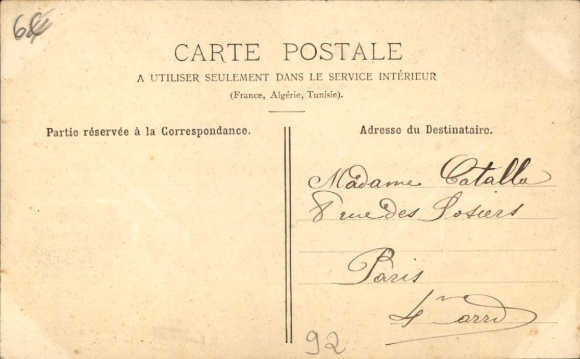 64
CARTE POSTALE
A UTILISER SEULEMENT DANS LE SERVICE INTÉRIEUR
(France, Algérie, Tunisie).
Partie réservée à la Correspondance.
Adresse du Destinataire.
Madame Catalla
8 rue des Rosiers
Paris
4e arrd
92